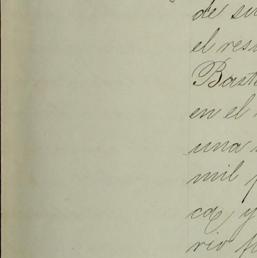 de su
el resu
Bast
en el
una
mil
ca, y
rio